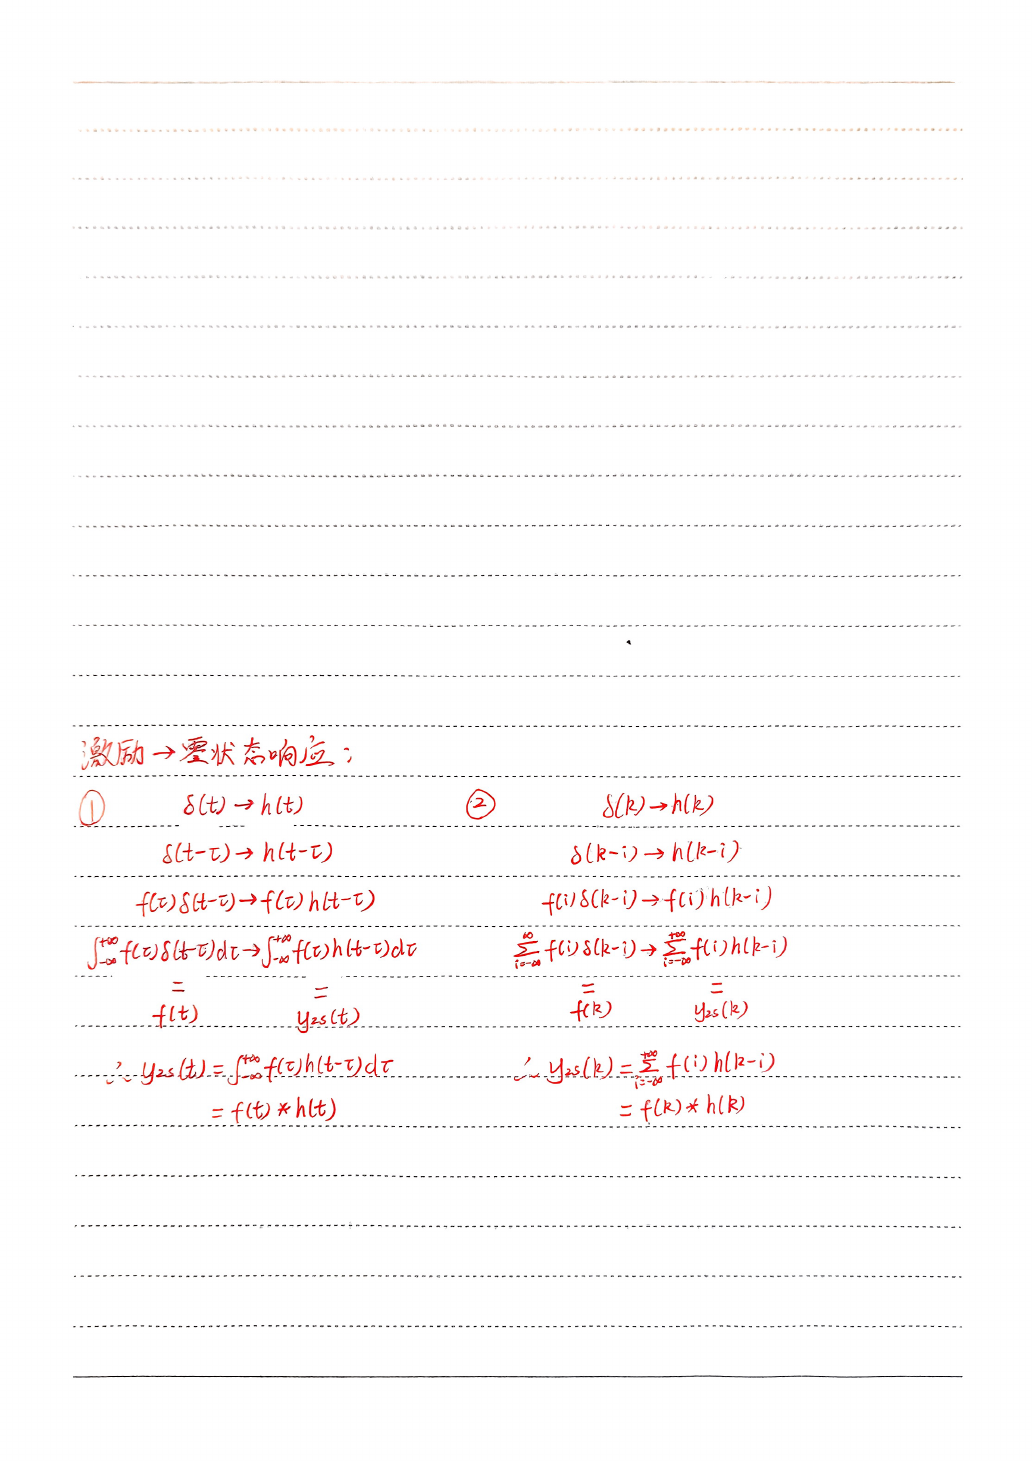 激励→零状态响应：
① δ(t)→h(t)
δ(t-τ)→h(t-τ)
f(τ)δ(t-τ)→f(τ)h(t-τ)
∫_{-∞}^{+∞} f(τ)δ(t-τ)dτ→∫_{-∞}^{+∞} f(τ)h(t-τ)dτ
= =
f(t) y_{zs}(t)
∴ y_{zs}(t)=∫_{-∞}^{+∞} f(τ)h(t-τ)dτ
=f(t)*h(t)
② δ(k)→h(k)
δ(k-i)→h(k-i)
f(i)δ(k-i)→f(i)h(k-i)
∑_{i=-∞}^{∞} f(i)δ(k-i)→∑_{i=-∞}^{+∞} f(i)h(k-i)
= =
f(k) y_{zs}(k)
∴ y_{zs}(k)=∑_{i=-∞}^{+∞} f(i)h(k-i)
=f(k)*h(k)